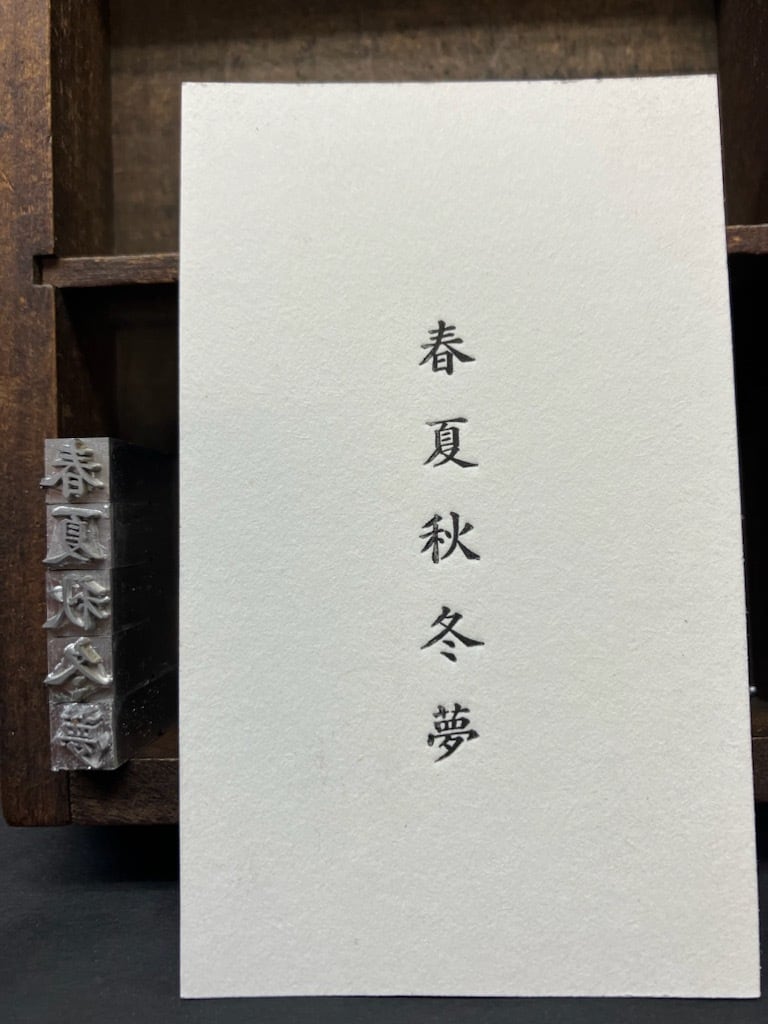 春夏秋冬夢
春夏秋冬夢